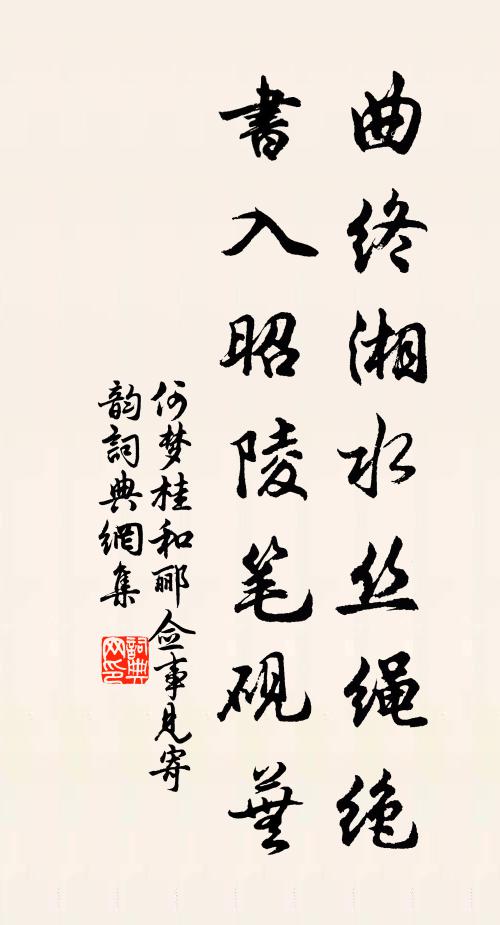 曲终湘水丝绳绝
書入昭陵笔砚蕪
何梦桂和郦佥事見寄
韵詞典網集
詞典網印